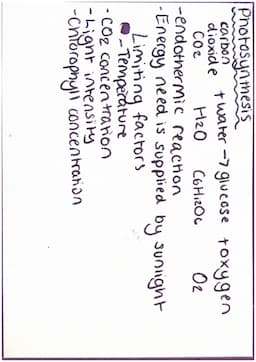 Photosynthesis
carbon
dioxide + water → glucose + oxygen
CO2 H2O C6H12O6 O2
-endothermic reaction
-Energy need is supplied by sunlight
Limiting factors
-Temperature
-CO2 concentration
-Light intensity
-Chlorophyll concentration